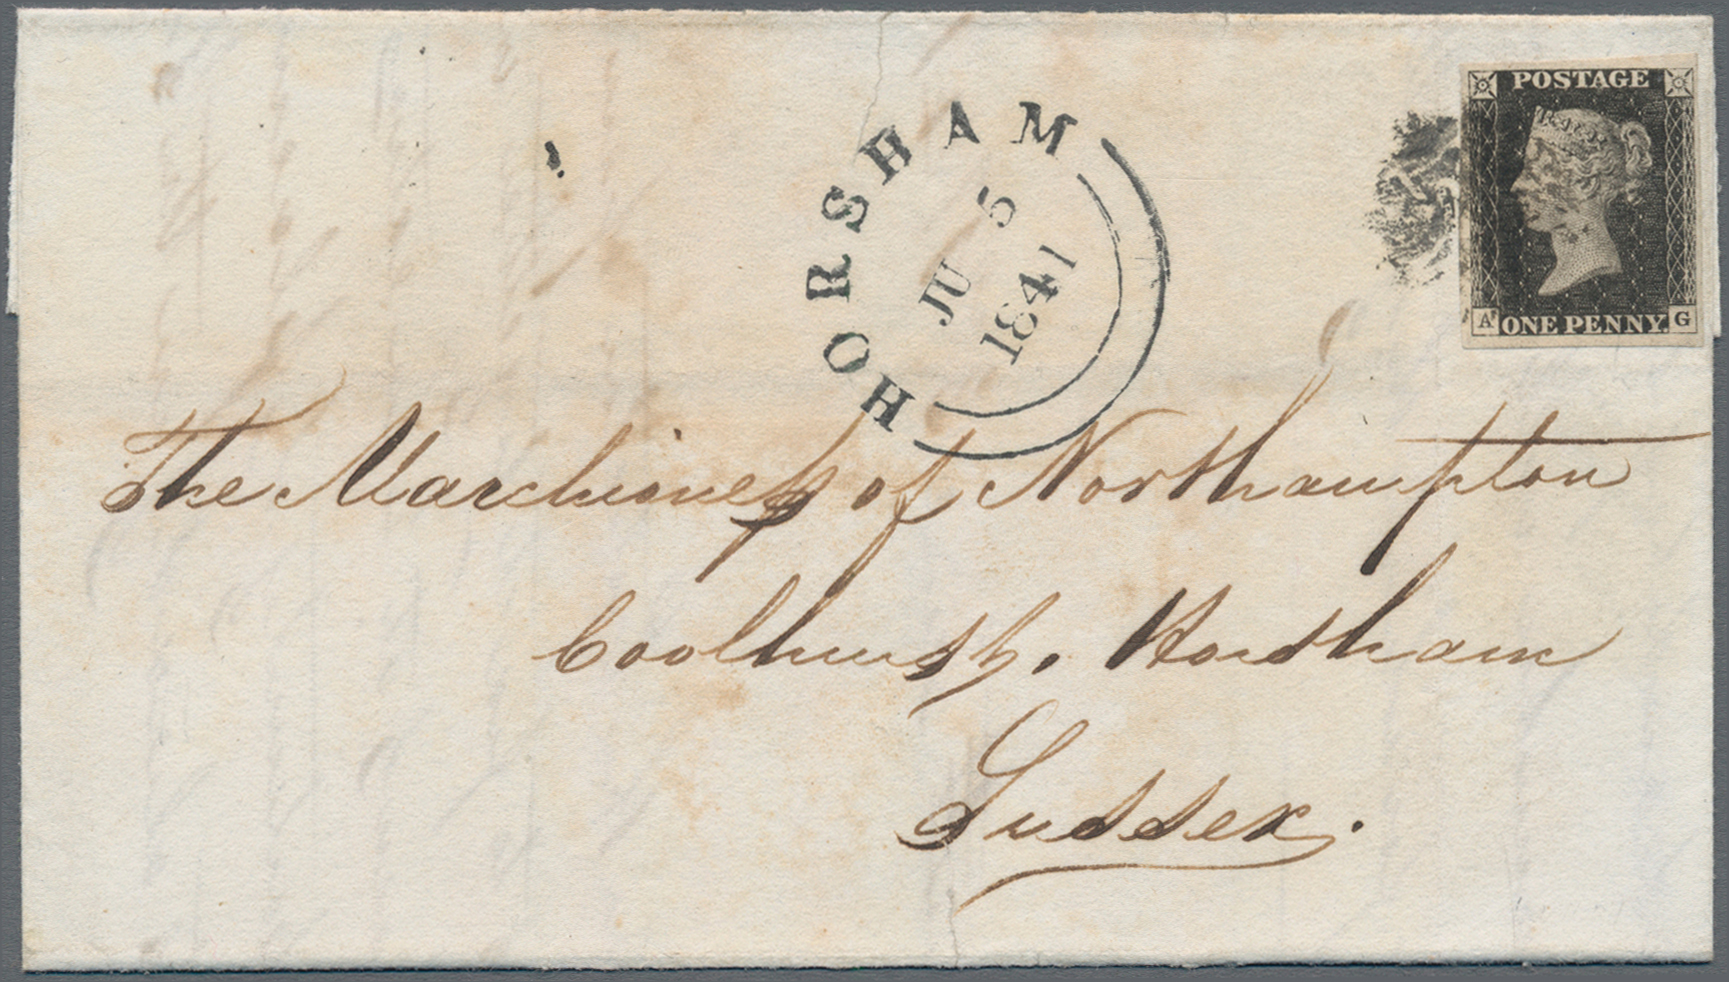 POSTAGE
A ONE PENNY. G
HORSHAM
JU 5
1841
The Marchioness of Northampton
Coolhurst, Horsham
Sussex.